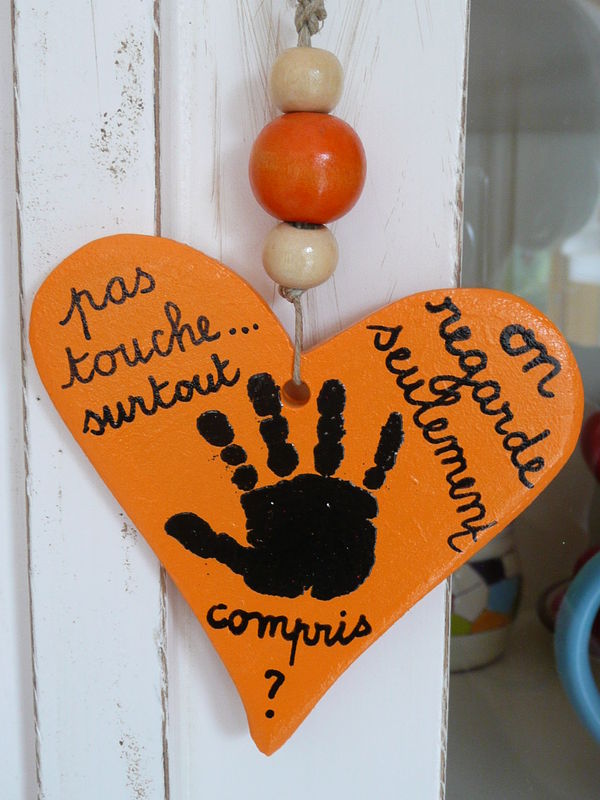 pas
touche...
surtout
on
regarde
seulement
compris
?